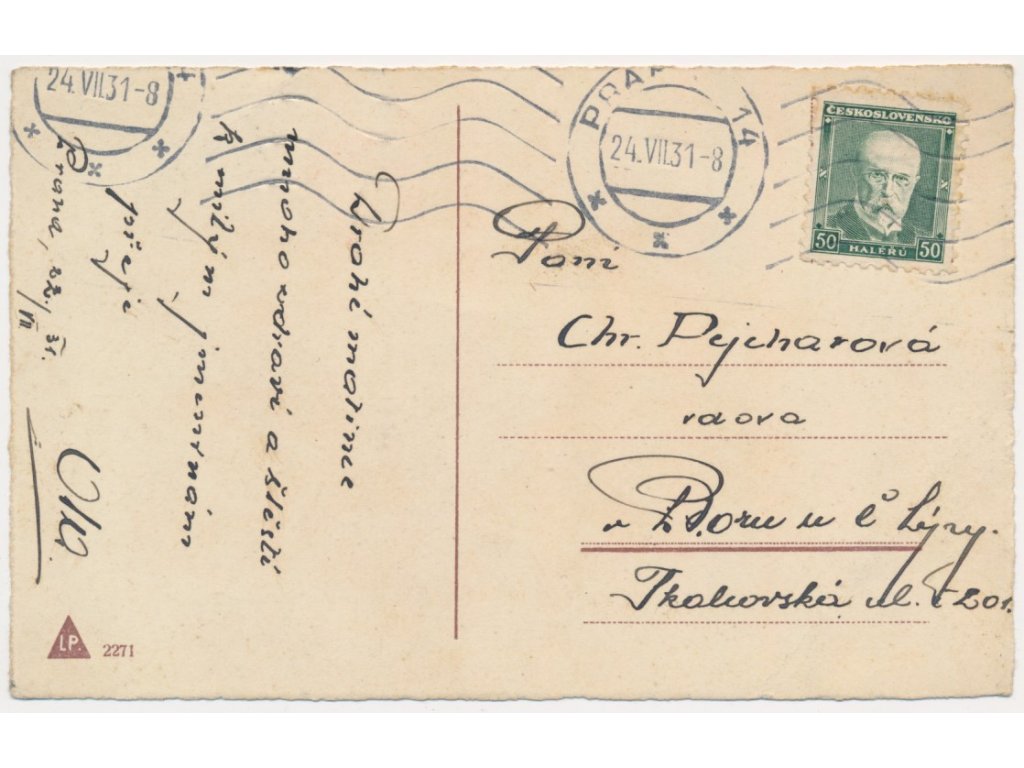 24.VII.31-8
PRAHA 14
24.VII.31-8
ČESKOSLOVENSKO
50 HALÉŘŮ 50
Drahé matince
mnoho zdraví a štěstí
k milým jmeninám
přeje
Praha, 23/VII 31.
Olga.
Paní
Chr. Pejcharová
vdova
v Boru u Č Lípy.
Tkalcovská ul. č 201.
L.P. 2271